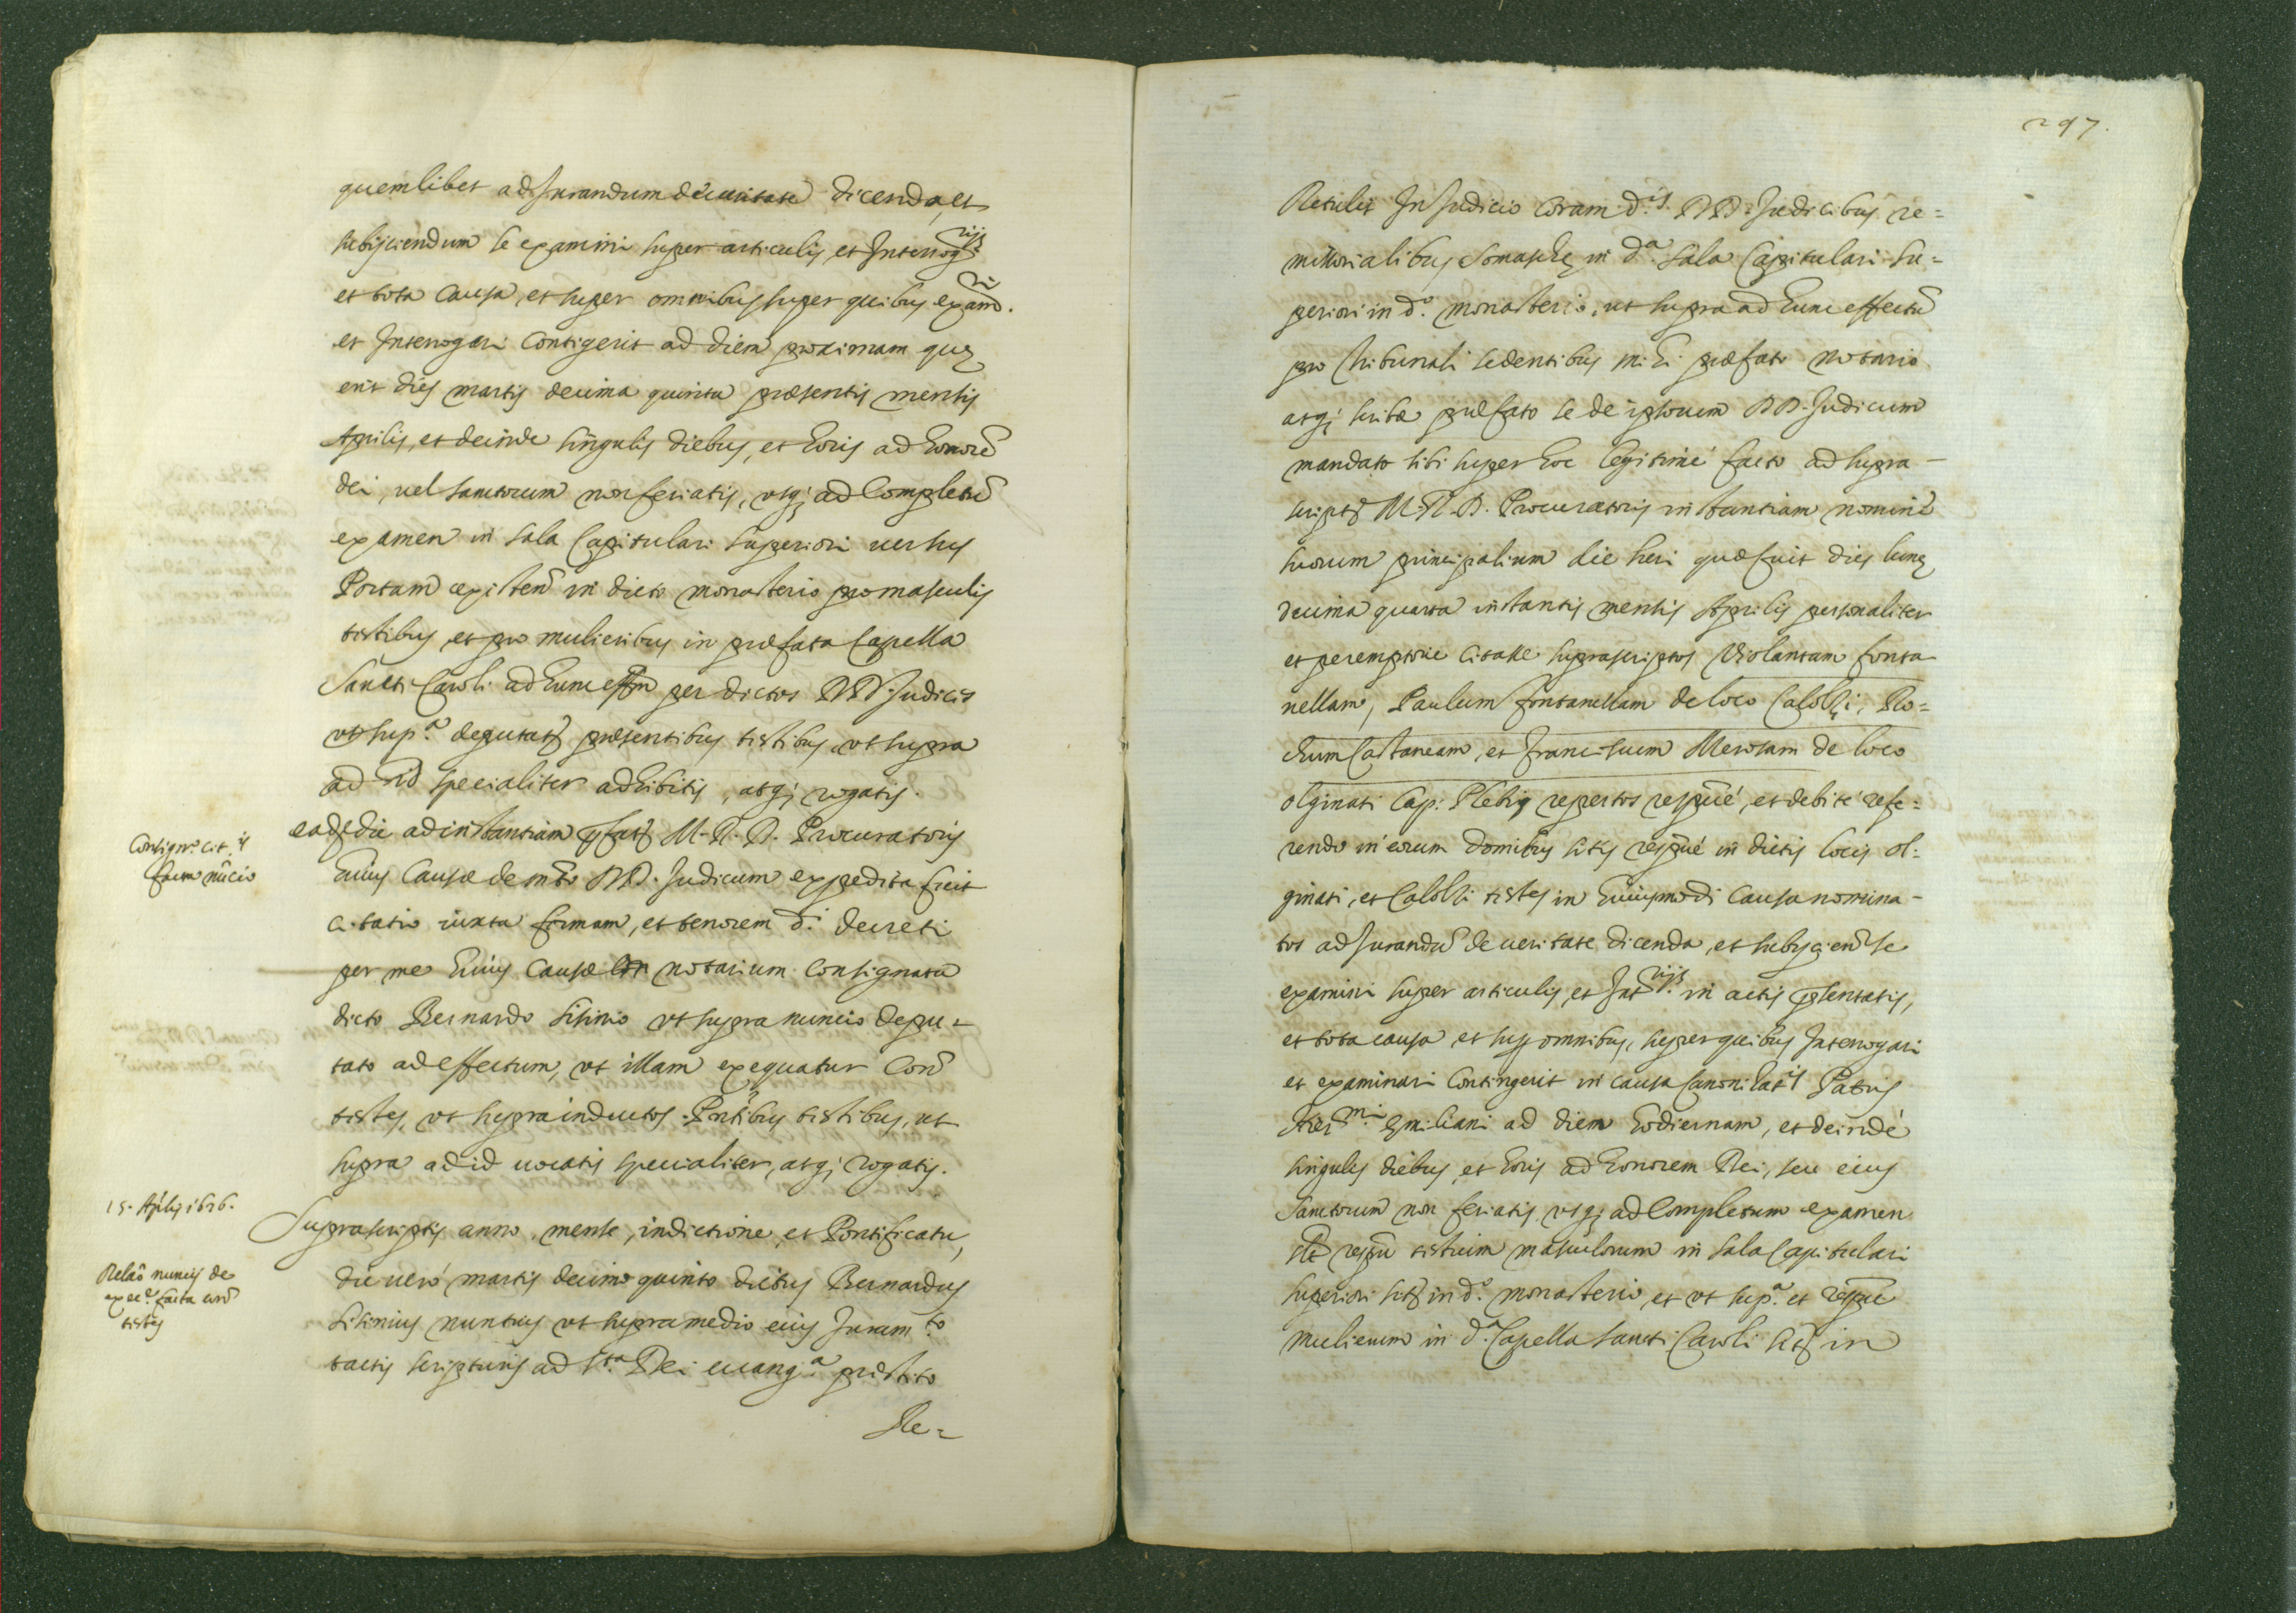 quemlibet ad Jurandum de ueritate dicenda, et
subijciendum se examini super articulis, et Interrog.rijs
et tota causa, et super omnibus super quibus exam.ri
et Interrogari Contigerit ad diem proximam quę
erit dies martis decima quinta præsentis mensis
Aprilis, et deinde singulis diebus, et horis ad honorẽ
dei, uel sanctorum non feriatis, usq; ad Completũ
examen in sala Capitulari superiori uersus
Portam existeñ in dicto monasterio pro masculis
testibus, et pro mulieribus in præfata Capella
Sancti Caroli ad hunc effm per dictos DD. Judices
ut sup.a deputat præsentibus testibus, ut supra
ad id specialiter adhibitis, atq; rogatis.
Consign.o cit.is
facta nũcio
eadẽ die ad instantiam pfati M. R. D. Procuratoris
huius Causæ de mto DD. Judicum expedita fuit
citatio iuxta formam, et tenorem d.i decreti
per me huius Causæ notarium Consignata
dicto Bernardo Sisinio ut supra nuncio depu-
tato ad effectum, ut illam exequatur Con̄
testes, ut supra inductos. Pñtibus testibus, ut
supra ad id uocatis specialiter, atq; rogatis.
15. Aplis 1626.
Suprascriptis anno, mense, indictione, et Pontificatu,
Relaõ nuncij de
exec.e facta con̄
testes
die uerò martis decimo quinto dictus Bernardus
Sisinius nuntius ut supra medio eius Juram.to
tactis scripturis ad S.ta Dei euang.a præstito
Re=
297.
Retulit In Judicio Coram d.is DD. Judicibus re=
missorialibus Somaschę in d.a Sala Capitulari su=
periori in d.o monasterio, ut supra ad hunc effectũ
pro tribunali sedentibus mihi præfato notario
atq; scribæ præfato se de ipsorum DD. Judicum
mandato sibi super hoc legitimè facto ad supra-
scripti M. R. D. Procuratoris instantiam nomine
suorum principalium die heri quæ fuit dies lunę
decima quarta instantis mensis Aprilis personaliter
et peremptorie citasse suprascriptos Violantam fonta
nellam, Paulum fontanellam de loco Calolzi, Ro=
chum Castaneam, et franciscum Merosam de loco
olginati Cap: Plebis repertos respuè, et debitè refe=
rendo in eorum domibus sitis respuè in dictis locis ol=
ginati, et Calolzi testes in huiusmodi Causa nomina-
tos ad Jurandũ de ueritate dicenda, et subijcien̄ se
examini super articulis, et Int.rijs in actis pñtatis,
et tota causa et sup omnibus, super quibus Interrogari
et examinari Contingerit in causa Canonizat.is Patris
Hier.mi Emiliani ad diem hodiernam, et deindè
singulis diebus, et horis ad honorem Dei, seu eius
Sanctorum non feriatis, usq; ad Completum examen
respũ testium masculorum in Sala Capitulari
superiori sita in d.o monasterio, et ut sup.a et respuè
mulierum in d.a Capella Sancti Caroli sita in